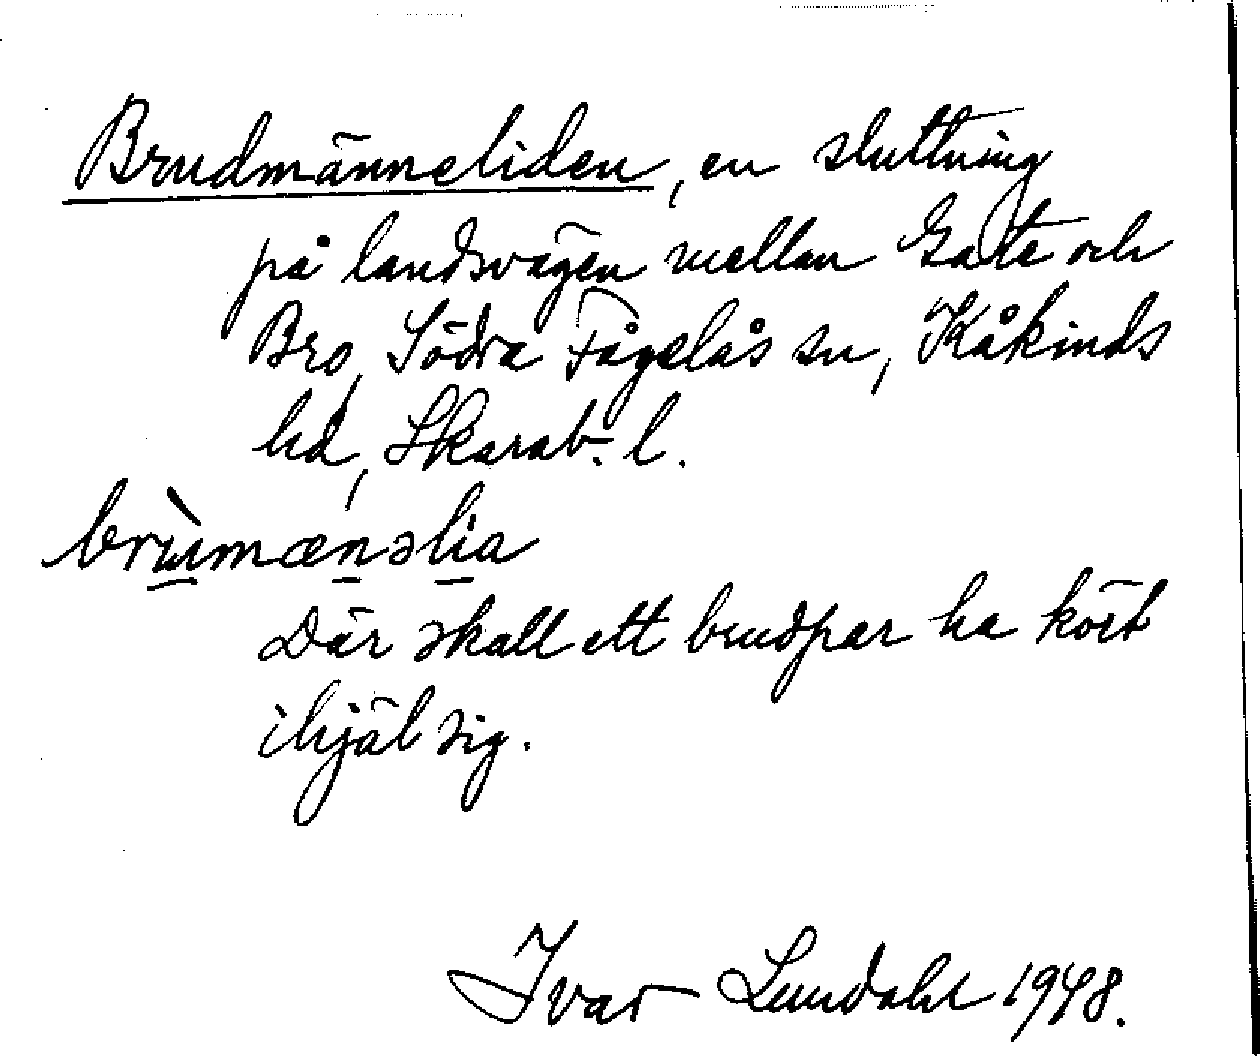 Brudmänneliden, en sluttning
på landsvägen mellan Gate och
Bro, Södra Fågelås sn, Kåkinds
hd, Skarab. l.
brùmænəlia
Där skall ett brudpar ha kört
ihjäl sig.
Ivar Lundahl 1948.